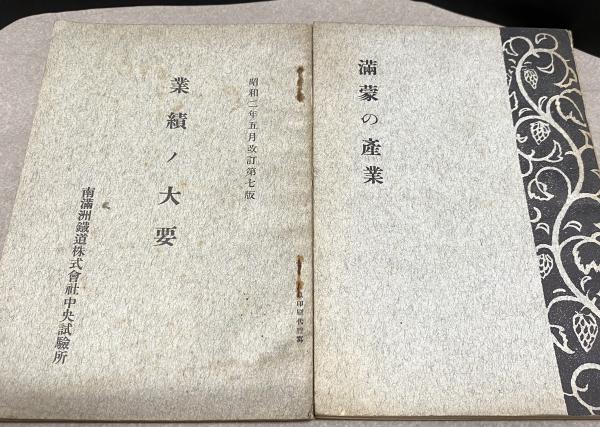 昭和二年五月改訂第七版
業績ノ大要
南滿洲鐵道株式會社中央試驗所
印刷代謄寫
滿蒙の產業